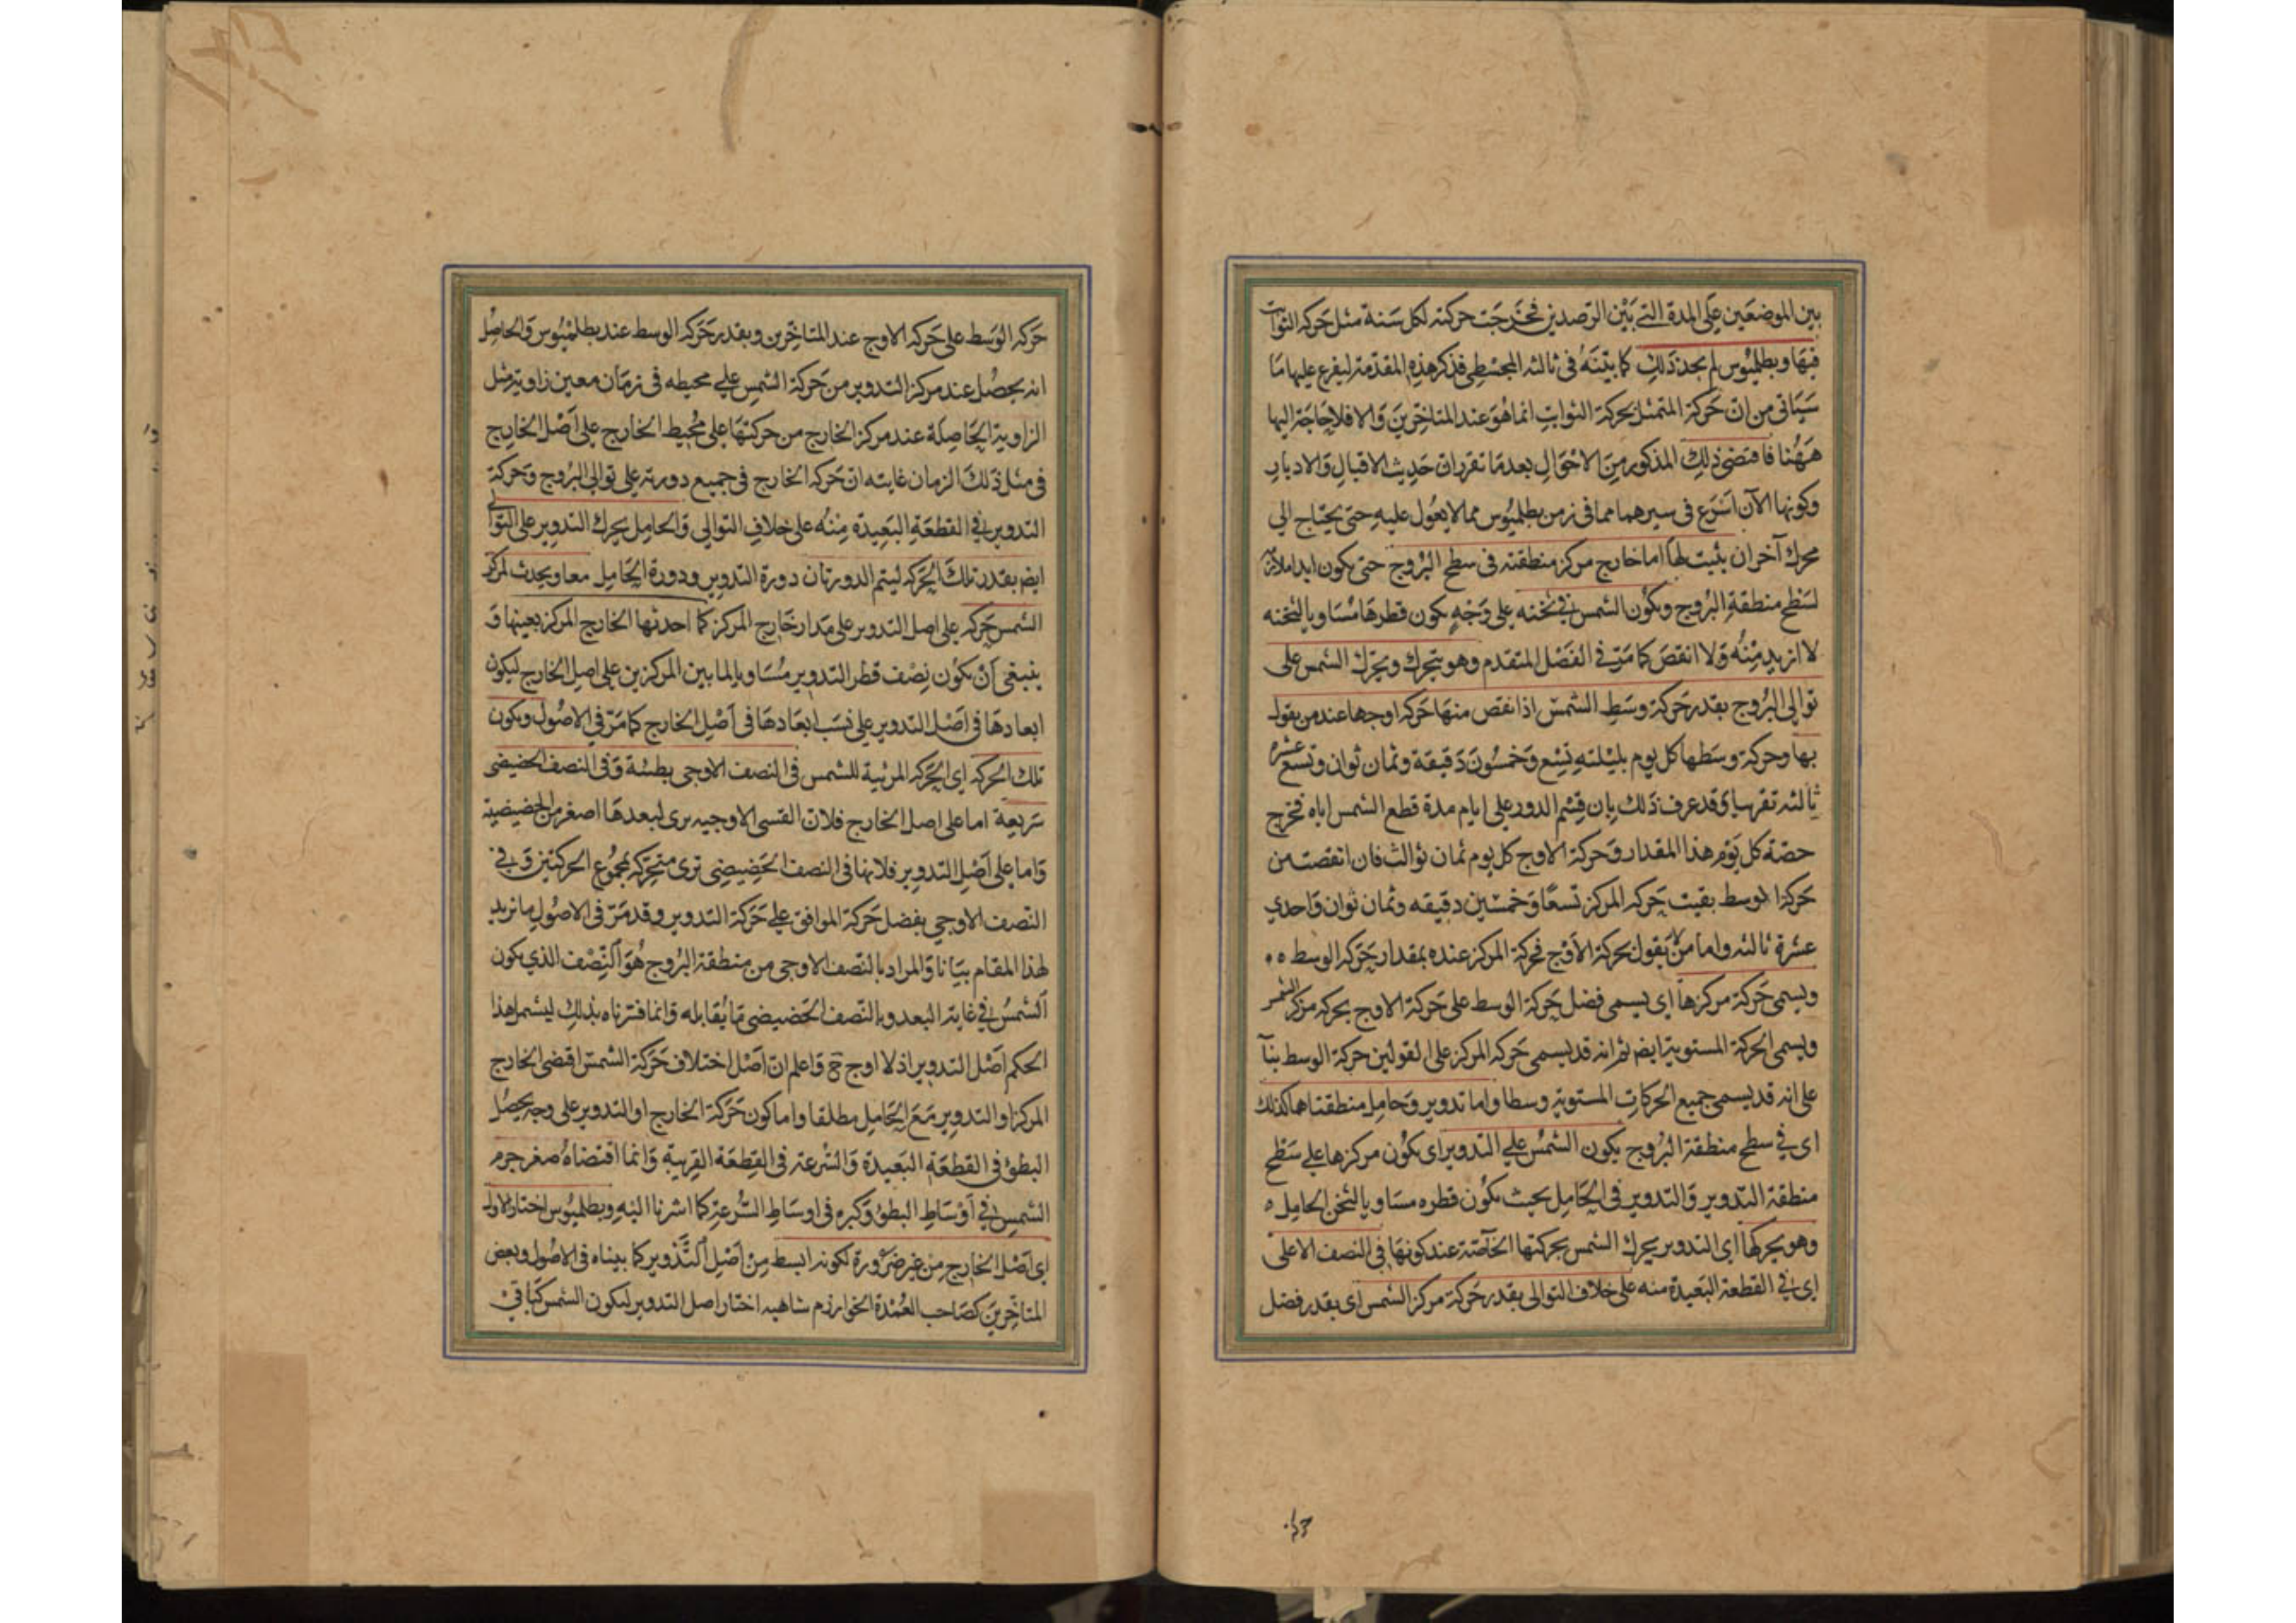 بين الموضعين على المدة التي بين الرصدين فخرجت حركته لكل سنة مثل حركة الثوابت
فيها وبطلميوس لم يجد ذلك كما بيّنه في ثالثة المجسطي فذكر هذه المقدمة ليفرع عليها ما
سيأتي من ان حركة المتمثل بحركة الثوابت انما هو عند المتاخرين والا فلا حاجة اليها
ههنا فاقتضى ذلك المذكور من الاحوال بعد ما تقرر ان حديث الاقبال والادبار
وكونها الآن اسرع في سيرهما مما في زمن بطلميوس مما لا يعول عليه حتى يحتاج الى
محرك آخر ان يثبت لها اما خارج مركز منطقته في سطح البروج حتى يكون ابدا ملازمة
لسطح منطقة البروج ويكون الشمس في ثخنه على وجه يكون قطرها مساويا لثخنه
لا ازيد منه ولا انقص كما مرّ في الفصل المتقدم وهو يتحرك ويحرك الشمس على
توالى البروج بقدر حركة وسط الشمس اذا نقص منها حركة اوجها عند من يقول
بها وحركة وسطها كل يوم بليلته تسع وخمسون دقيقة وثمان ثوان وتسع عشرة
ثالثة تقريبا وقد عرف ذلك بان قسم الدور على ايام مدة قطع الشمس اياه فخرج
حصة كل يوم هذا المقدار وحركة الاوج كل يوم ثمان ثوالث فان انقصت من
حركة الوسط بقيت حركة المركز تسعًا وخمسين دقيقه وثمان ثوان واحدى
عشرة ثالثه واما من لا يقول بحركة الاوج فحركة المركز عنده بمقدار حركة الوسط
ويسمى حركة مركزها اى يسمى فضل حركة الوسط على حركة الاوج بحركه مركز الشمس
ويسمى الحركة المستوية ايضا ثم انه قد يسمى حركه المركز على القولين حركة الوسط بناء
على انه قد يسمى جميع الحركات المستوية وسطا واما تدوير وحامل منطقتاهما كذلك
اى في سطح منطقة البروج يكون الشمس على التدوير اى يكون مركزها على سطح
منطقة التدوير والتدوير في الحامل بحيث يكون قطره مساويا لثخن الحامل
وهو يحركها اى التدوير يحرك الشمس بحركتها الخاصة عند كونها في النصف الاعلى
اى في القطعة البعيدة منه على خلاف التوالى بقدر حركة مركز الشمس اى بقدر فضل
حركة
حركة الوسط على حركة الاوج عند المتاخرين وبقدر حركة الوسط عند بطلميوس والحاصل
انه يحصل عند مركز التدوير من حركة الشمس على محيطه في زمان معين زاوية مثل
الزاوية الحاصلة عند مركز الخارج من حركتها على محيط الخارج على اصل الخارج
في مثل ذلك الزمان غايته ان حركة الخارج في جميع دورته على توالى البروج وحركة
التدوير في القطعة البعيدة منه على خلاف التوالي والحامل يحرك التدوير على التوالي
ايضا بقدر تلك الحركه ليتم الدورتان دورة التدوير ودورة الحامل معا ويحدث لمركز
الشمس حركة على اصل التدوير على مدار خارج المركز كما احدثها الخارج المركز بعينها و
ينبغي ان يكون نصف قطر التدوير مساويا لما بين المركزين على اصل الخارج ليكون
ابعادها في اصل التدوير على نسب ابعادها في اصل الخارج كما مرّ في الاصول ويكون
تلك الحركه اى الحركه المرئية للشمس في النصف الاوجى بطيئة وفي النصف الحضيضى
سريعة اما على اصل الخارج فلان القسى الاوجيه يرى لبعدها اصغر من الحضيضية
واما على اصل التدوير فلانها في النصف الحضيضى ترى متحركه بمجموع الحركتين وفي
النصف الاوجى بفضل حركة الموافق على حركة التدوير وقد مرّ في الاصول ما نزيد
لهذا المقام بيانا والمراد بالنصف الاوجى من منطقة البروج هو النصف الذى يكون
الشمس في غاية البعد وبالنصف الحضيضى ما يقابله وانما فسرناه بذلك ليشمل هذا
الحكم اصل التدوير اذ لا اوج ثمة واعلم ان اصل اختلاف حركة الشمس اقتضى الخارج
المركز او التدوير مع الحامل مطلقا واما كون حركة الخارج او التدوير على وجه يحصل
البطؤ في القطعة البعيدة والسرعة في القطعة القريبة وانما اقتضاه صغر جرم
الشمس في اوساط البطؤ وكبره في اوساط السرعة كما اشرنا اليه وبطلميوس اختار الاول
اى اصل الخارج من غير ضرورة لكونه ابسط من اصل التدوير كما بيناه في الاصول وبعض
المتاخرين كصاحب العمدة الخوارزم شاهيه اختار اصل التدوير ليكون الشمس كباقي